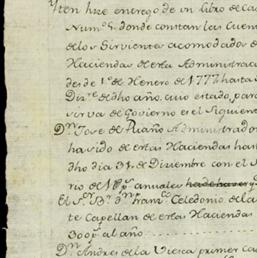 Yten hize entrego de un libro de ca
Num.º 5. donde constan las Cuen
de los Sirvientes acomodados d
Haciendas de esta Administrac
desde 1.º de Henero de 1777 hasta
Diz.e de dho año, cuio estado, para
sirva de Govierno es el Siguiente
D.n Jose de Ruano Administrador
havido de estas Haciendas has
dho dia 31 de Diciembre con el S
rio de anuales
El S.or B.r D.n Fran.co Celedonio de la
te Capellan de estas Haciendas
300 p.s al año
D.n Andres de la Viesca primer ca